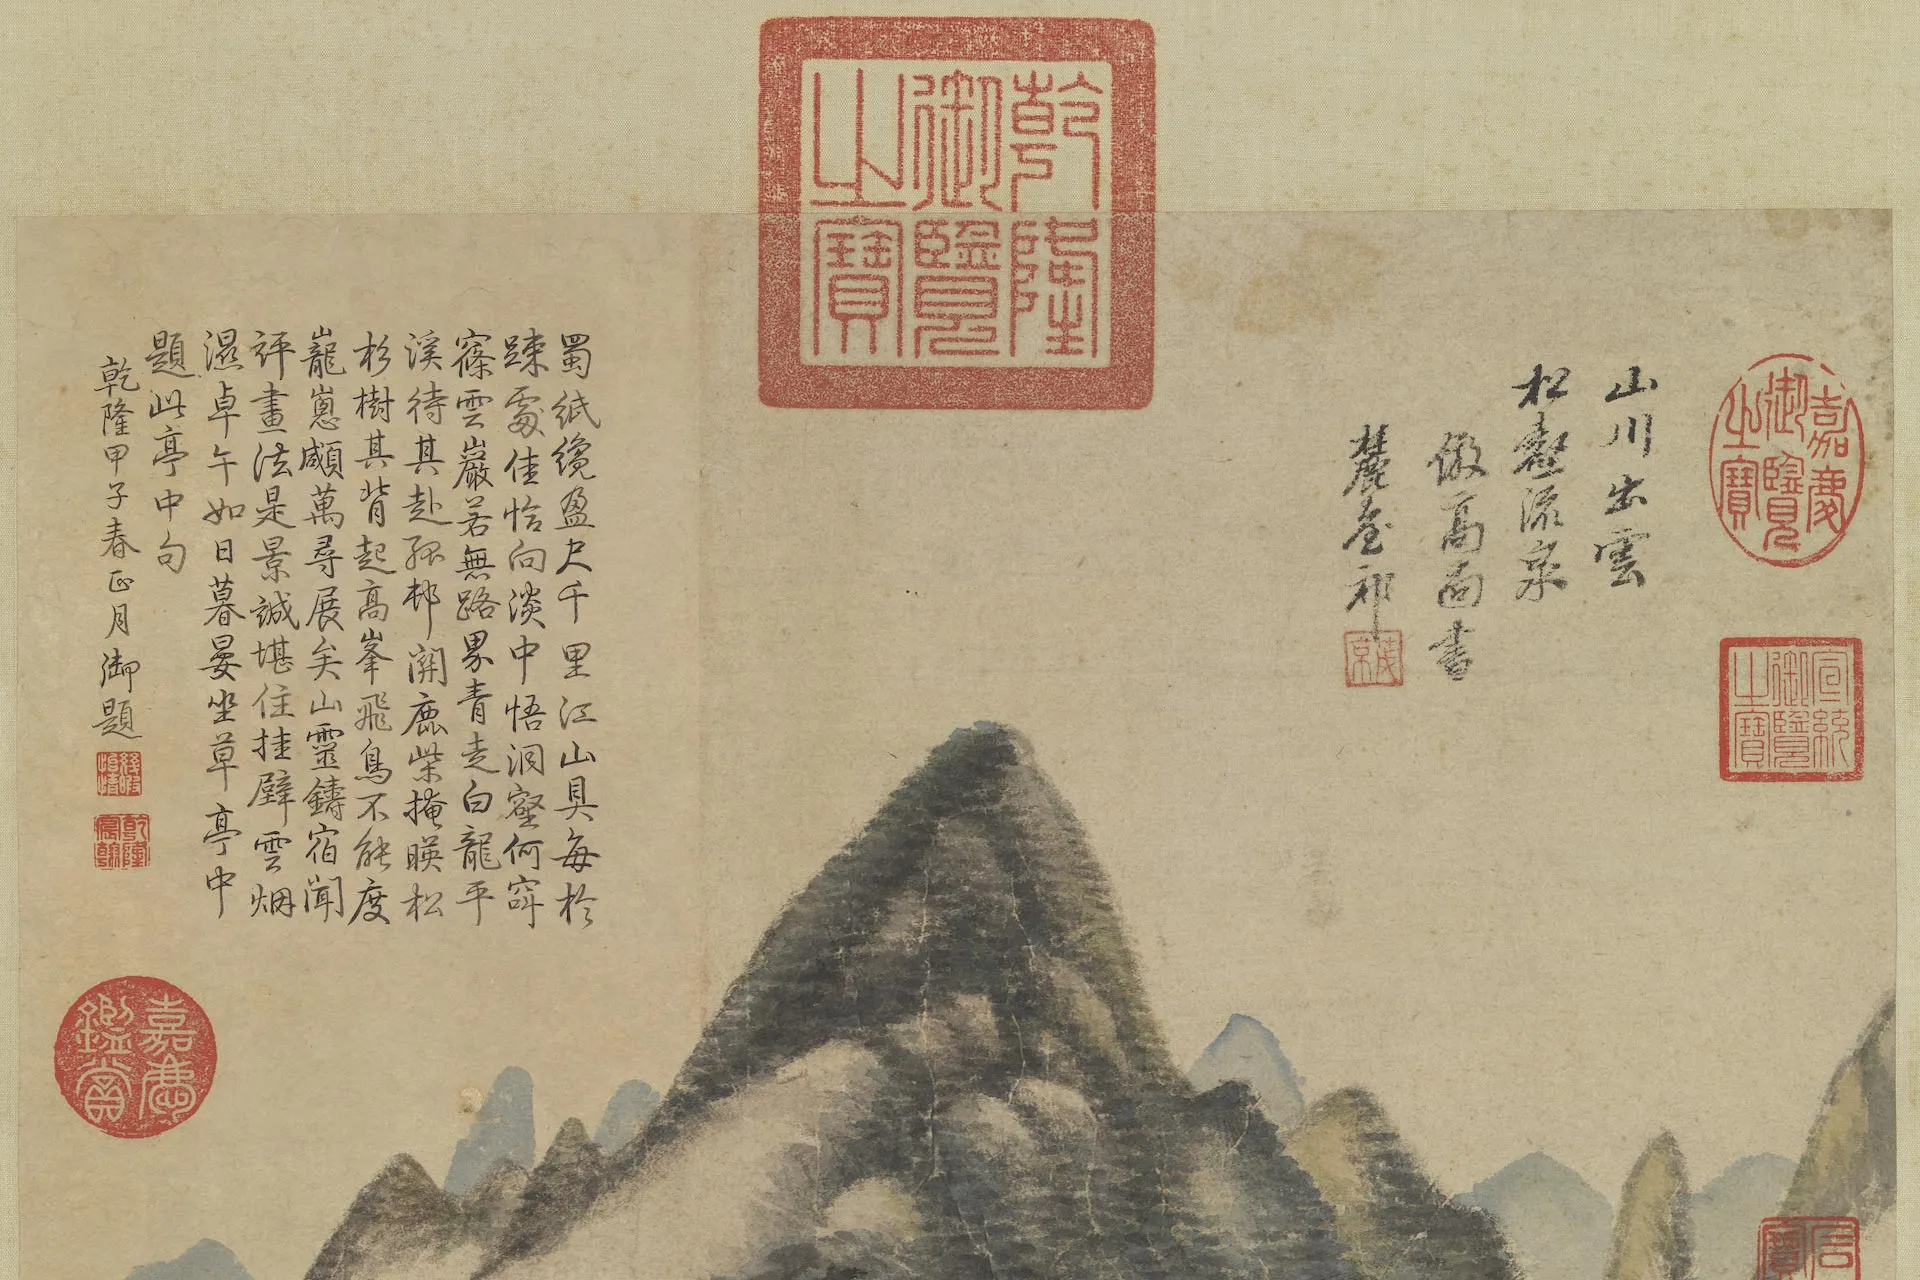 嘉慶御覽之寶
宣統御覽之寶
山川出雲
松壑流泉
倣高尚書
麓臺祁
茂京
乾隆御覽之寶
蜀紙纔盈尺千里江山具每於
踈處佳恰向淡中悟洞壑何窅
窱雲巖若無路界青走白龍平
溪待其赴孤邨開鹿柴掩暎松
杉樹其背起高峯飛鳥不能度
巃萬尋展矣山靈鑄宿聞
評畫法是景誠堪住挂壁雲烟
濕卓午如日暮晏坐草亭中
題此亭中句
乾隆甲子春正月御題
乾隆宸翰
嘉慶鑑賞